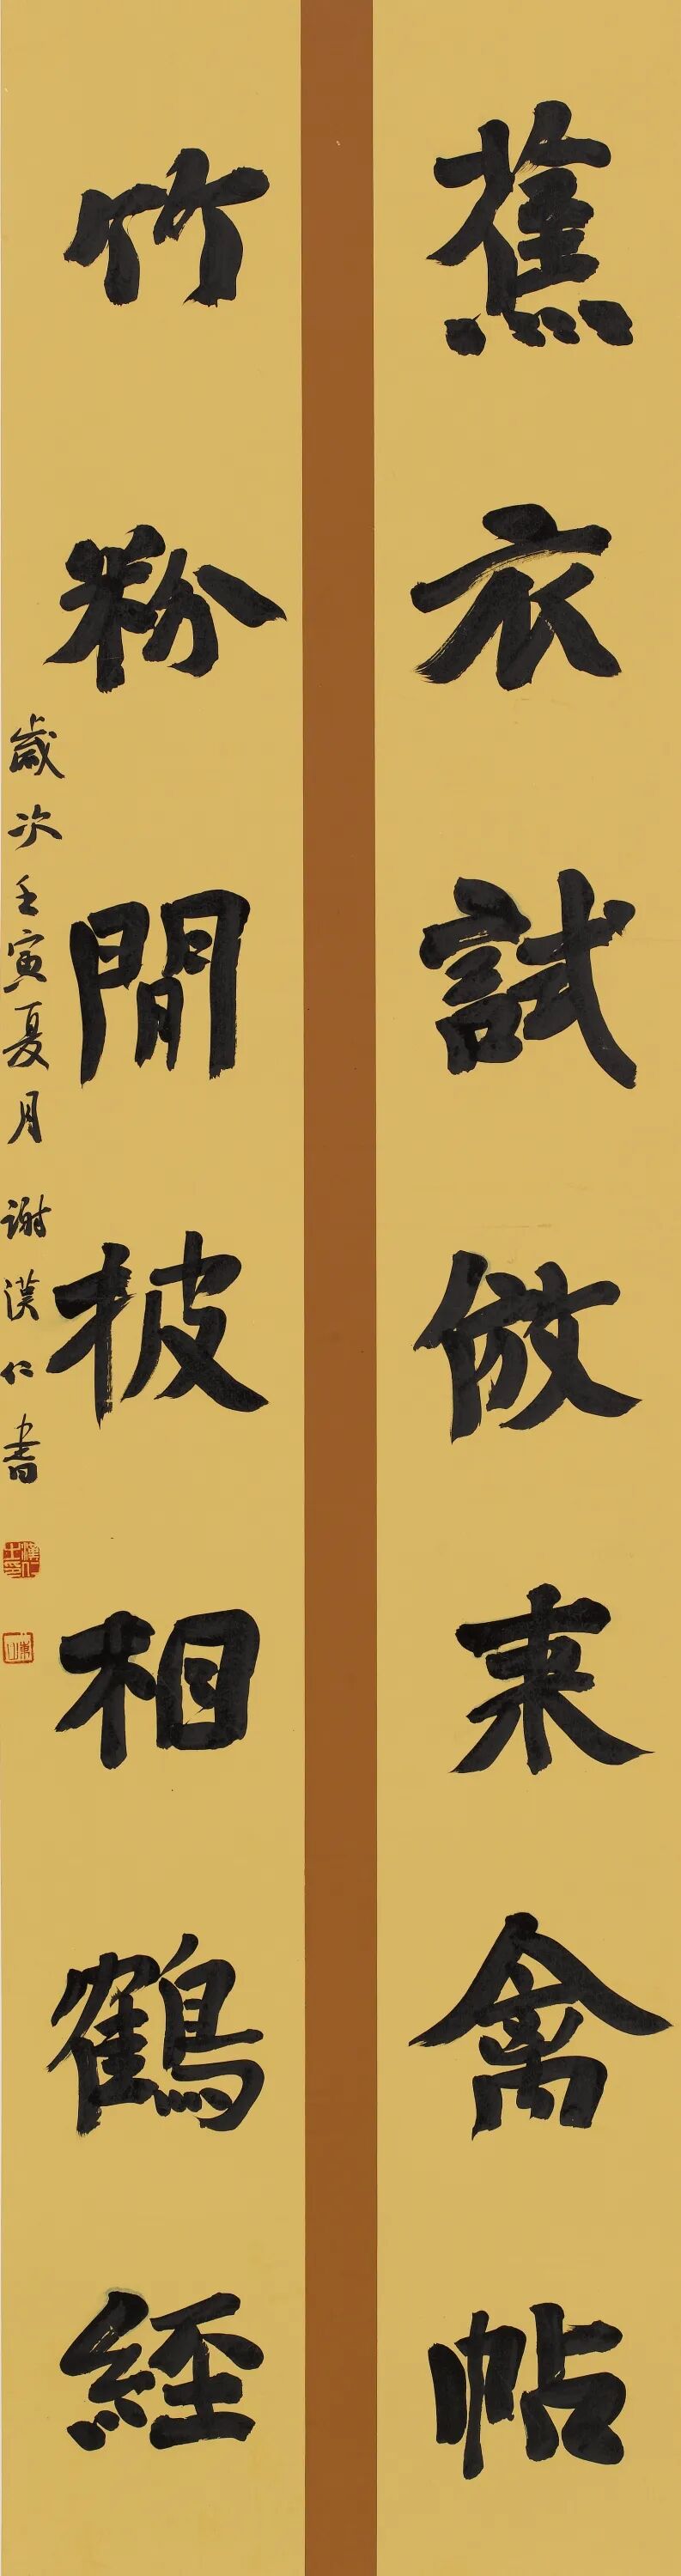 蕉衣試倣來禽帖
竹粉閒披相鶴經
歲次壬寅夏月 謝漢仁書